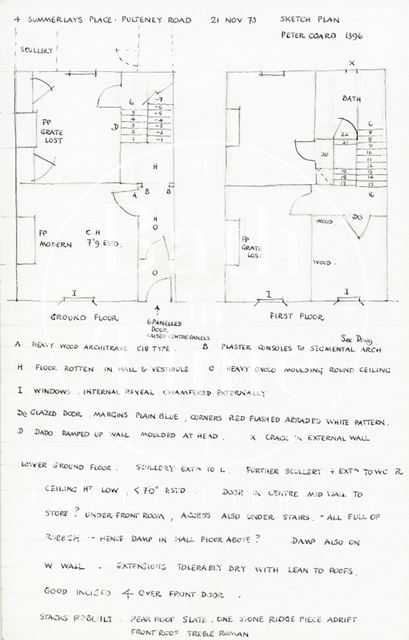 4 SUMMERLAYS PLACE · PULTENEY ROAD 21 NOV 73 SKETCH PLAN
PETER COARD 1396
SCULLERY
X
BATH
6
7
5
4
3
2
1
D
FP
GRATE
LOST
H
A
B
B
FP
MODERN
C.H
7'9 ESTD.
H
O
O
I
A
GROUND FLOOR
6 PANELLED
DOOR
RAISED CENTRE PANELS
22
21
20
19
18
17
16
6
7
8
9
10
11
12
13
14
15
16
WOOD
DG
FP
GRATE
LOST
WOOD
I
I
FIRST FLOOR
See Drwg
A HEAVY WOOD ARCHITRAVE C18 TYPE. B PLASTER CONSOLES TO SEGMENTAL ARCH
H FLOOR ROTTEN IN HALL & VESTIBULE O HEAVY OVOLO MOULDING ROUND CEILING
I WINDOWS. INTERNAL REVEAL CHAMFERED EXTERNALLY
DG GLAZED DOOR, MARGINS PLAIN BLUE, CORNERS RED FLASHED ABRADED WHITE PATTERN.
D DADO RAMPED UP WALL MOULDED AT HEAD. X CRACK IN EXTERNAL WALL
LOWER GROUND FLOOR. SCULLERY EXTN TO L. FURTHER SCULLERY + EXTN TO WC R.
CEILING HT LOW, <7'0" ESTD. DOOR IN CENTRE MID WALL TO
STORE? UNDER FRONT ROOM, ACCESS ALSO UNDER STAIRS. - ALL FULL OF
RUBBISH - HENCE DAMP IN HALL FLOOR ABOVE? DAMP ALSO ON
W WALL. EXTENSIONS TOLERABLY DRY WITH LEAN TO ROOFS.
GOOD INCISED 4 OVER FRONT DOOR.
STACKS REBUILT. REAR ROOF SLATE. ONE STONE RIDGE PIECE ADRIFT
FRONT ROOF TREBLE ROMAN